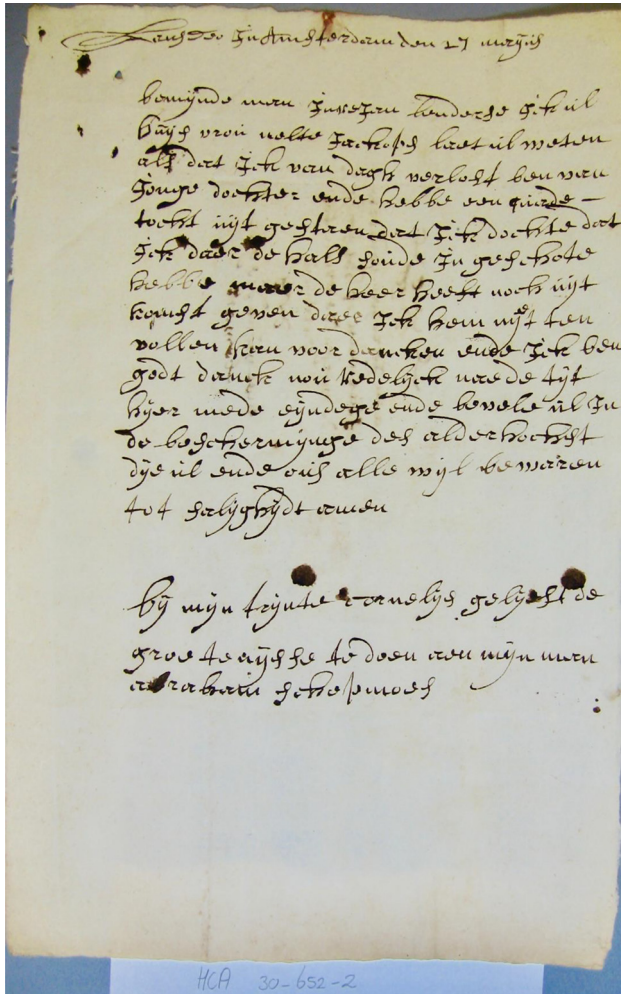 Laus deo In Amsterdam den 17 maijis
bemijnde man Jan lenderse Ick ul
huijs vrou nelte Jackops laet ul weten
als dat Ick van dagh verlost ben van
Jonge dochter ende hebbe een quade
tocht uijt gestaen dat Ick dochte dat
Ick daer de hals soude In geschote
hebbe maer de heer heeft noch uijt
komst geven daer Ick hem niet ten
vollen kan voor dancken ende Ick ben
godt danck nou redelijck nae de tijt
hijer mede eijndege ende bevele ul In
de beschermijnge des alderhochst
dije ul ende ons alle wijl bewaren
tot salijghijdt amen
bij mijn trijnte cornelijs gelijeft de
groetenijsse te doen aen mijn man
abraham schepmoes
HCA 30-652-2